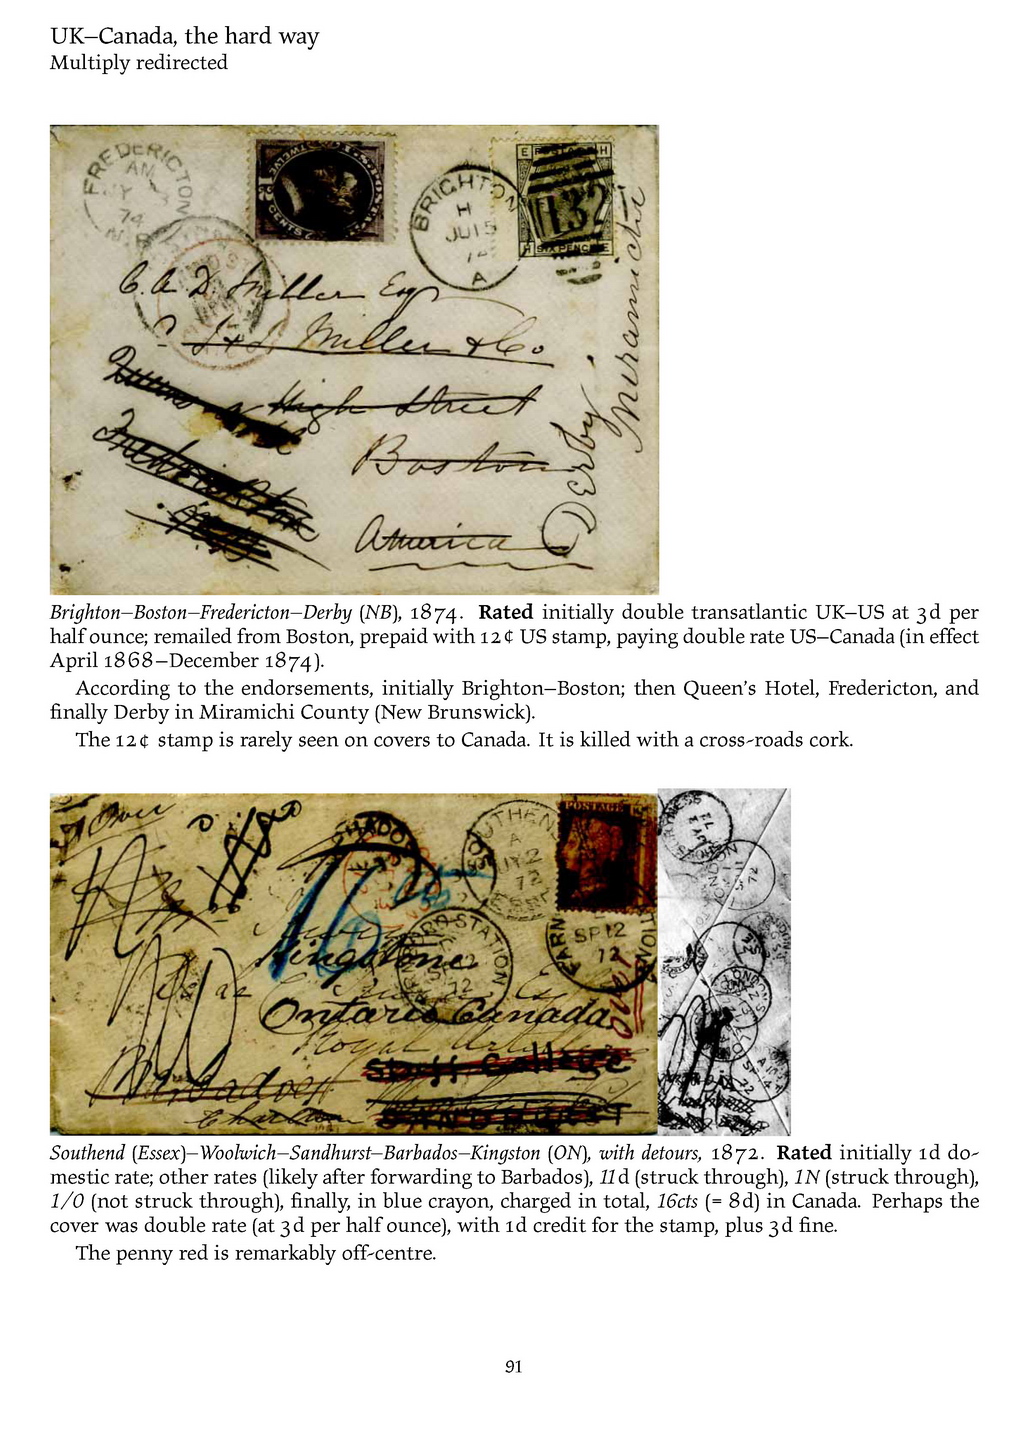 UK–Canada, the hard way
Multiply redirected
FREDERICTON
AM
74
N.B
CENTS
BRIGHTON
H
JU 15
74
A
E POSTAGE H
132
H SIX PENCE E
C. A. D. Miller Esq
Miller & Co
High Street
Boston
America
Derby
Miramichi
Brighton–Boston–Fredericton–Derby (NB), 1874. Rated initially double transatlantic UK–US at 3d per
half ounce; remailed from Boston, prepaid with 12¢ US stamp, paying double rate US–Canada (in effect
April 1868–December 1874).
According to the endorsements, initially Brighton–Boston; then Queen's Hotel, Fredericton, and
finally Derby in Miramichi County (New Brunswick).
The 12¢ stamp is rarely seen on covers to Canada. It is killed with a cross-roads cork.
SOUTHEND
A
JY 2
72
ESSEX
POSTAGE
16
STATION
SP 12
72
SP 12
72
Kingstone
Ontario Canada
Royal Artillery
Staff College
Barbadoes
Southend (Essex)–Woolwich–Sandhurst–Barbados–Kingston (ON), with detours, 1872. Rated initially 1d do-
mestic rate; other rates (likely after forwarding to Barbados), 11d (struck through), 1N (struck through),
1/0 (not struck through), finally, in blue crayon, charged in total, 16cts (= 8d) in Canada. Perhaps the
cover was double rate (at 3d per half ounce), with 1d credit for the stamp, plus 3d fine.
The penny red is remarkably off-centre.
91